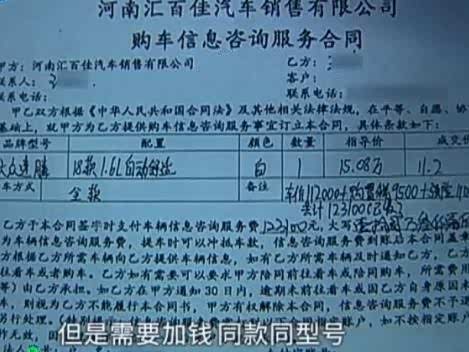 河南汇百佳汽车销售有限公司
购车信息咨询服务合同
甲方:河南汇百佳汽车销售有限公司 乙方:
联系人: 客户:
联系电话: 联系电话:
甲乙双方根据《中华人民共和国合同法》及其相关法律法规,在平等、自愿、协
基础上,就甲方为乙方提供购车信息咨询服务事宜订立本合同,具体条款如下:
型号 配置 颜色 数量 指导价 成交价
大众速腾 18款1.6L自动舒适 白 1 15.08万 11.2
车方式 全款 备注 车价112000+购置税9500+保险
共计123100
乙方于本合同签字时支付车辆信息咨询服务费 123100元,大写
为车辆信息咨询服务费,提车时可以冲抵车款,信息咨询服务费到账后本合同
根据乙方所需车辆向乙方提供车辆信息,如有乙方所需车辆及时通知乙方,乙
往看车或者购车。乙方如有需要可以要求甲方陪同前往看车或陪同购车,所需费用
等)由乙方承担,如乙方在甲方通知30日内,逾期未前往看车或因乙方自身原因未
车,则视为乙方不能履行本合同书,甲方有权解除本合同,信息咨询服务费不予退
另行处理。
账户,如不按指定账户
但是需要加钱同款同型号